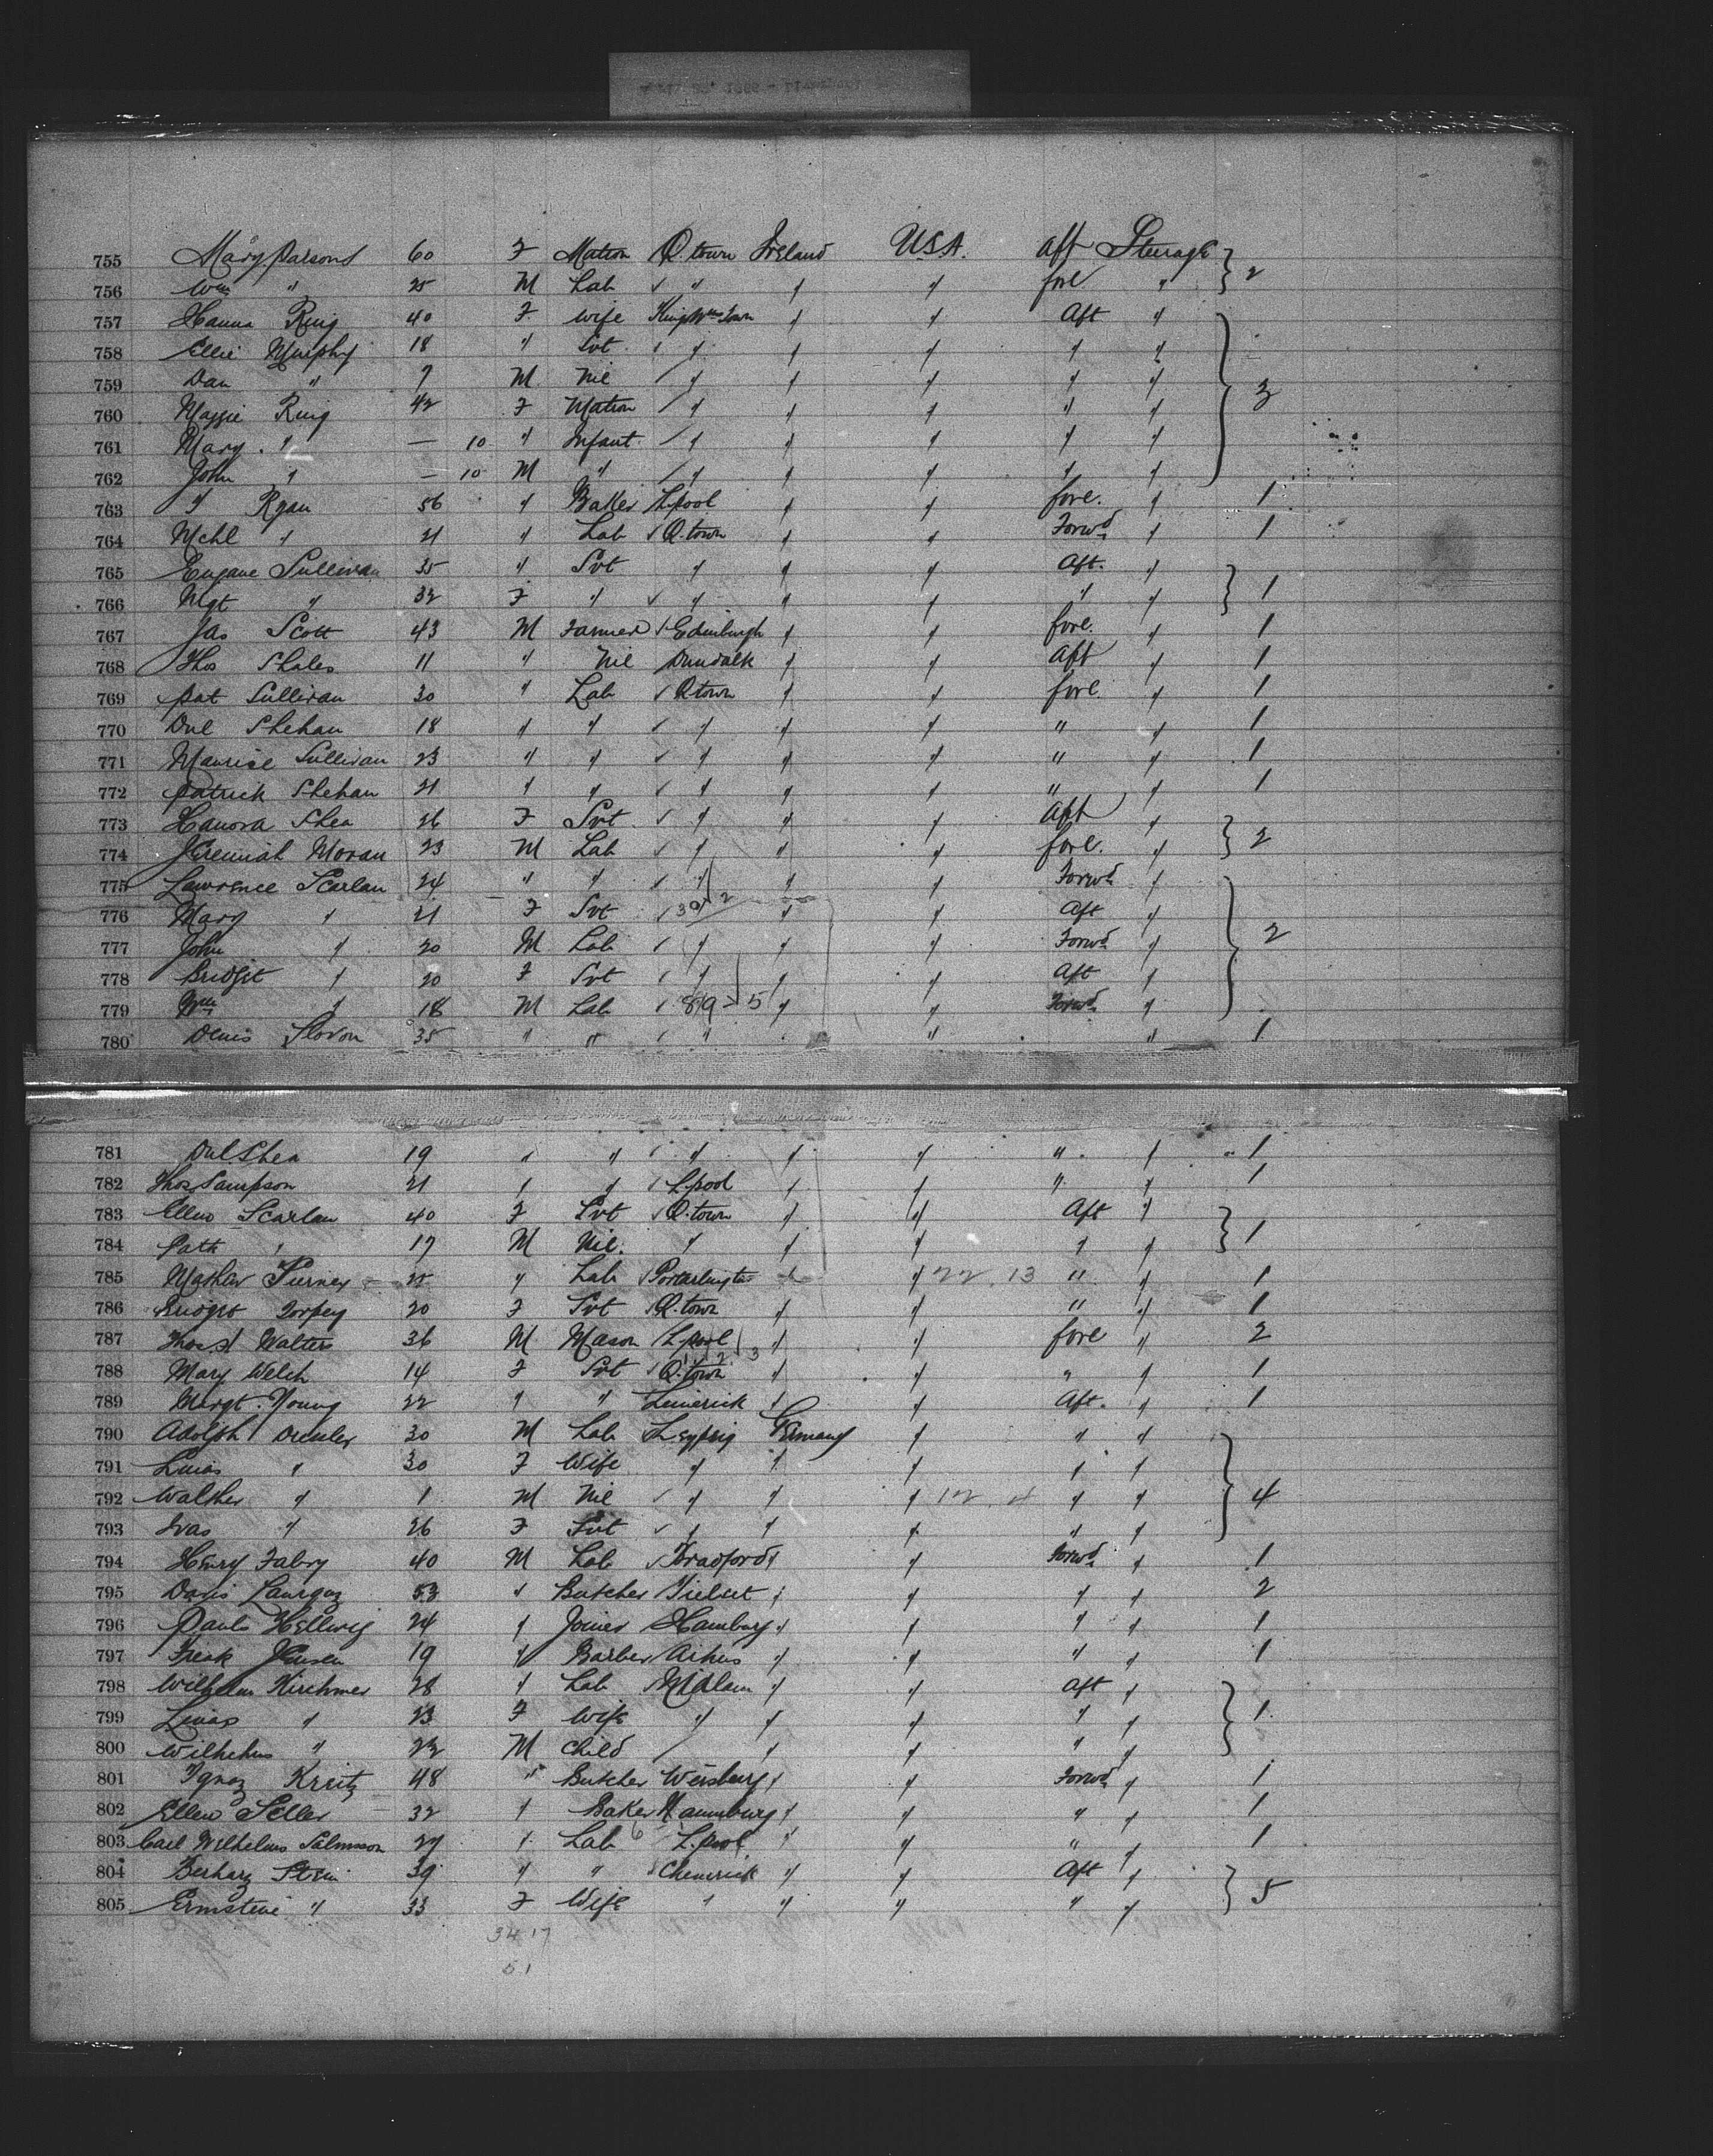 755 Mary Parsons 60 F Matron Q.town Ireland U.S.A. Aft Steerage } 2
756 Wm " 25 M Lab " " " fore "
757 Hanna Ring 40 F Wife " " Aft "
758 Ellie Murphy 18 " Svt " " " " "
759 Dan " 7 M Nil " " " " "
760 Maggie Ring 42 F Matron " " " " " } 3
761 Mary " — 10 " Infant " " " " "
762 John " — 10 M " " " " " "
763 J Ryan 56 " Baker L.pool " " fore. " 1
764 Mchl " 21 " Lab Q.town " " Forwd " 1
765 Eugane Sullivan 35 " Svt " " " Aft. "
766 Mgt " 32 F " " " " " " } 1
767 Jas Scott 43 M Farmer Edinburgh " " fore. " 1
768 Thos Shales 11 " Nil Dundalk " " Aft " 1
769 Pat Sullivan 30 " Lab Q.town " " fore. " 1
770 Dnl Shehan 18 " " " " " " " 1
771 Maurice Sullivan 23 " " " " " " " 1
772 Patrick Shehan 21 " " " " " " " 1
773 Hanora Shea 26 F Svt " " " Aft "
774 Jeremiah Moran 23 M Lab " " " fore. " } 2
775 Lawrence Scarlan 24 " " " " " Forwd "
776 Mary " 21 F Svt " " Aft "
777 John " 20 M Lab " " " Forwd " } 2
778 Bridget " 20 F Svt " " " Aft "
779 Wm " 18 M Lab 89 - 5 " " Forwd "
780 Denis Slovon 35 " " " " " 1
781 Dnl Shea 19 " " " " " " " 1
782 Thos Sampson 21 " " L.pool " " " " 1
783 Ellen Scarlan 40 F Svt Q.town " " Aft "
784 Patk " 17 M Nil. " " " " " } 1
785 Tierney " Lab " " 22.13 " " 1
786 Bridget Torpey 20 F Svt Q.town " " " " 1
787 Thos H Walters 36 M Mason L.pool " " fore " 2
788 Mary Welch 14 F Svt Q.town " " " " 1
789 Margt. Young 22 " " Limerick " " Aft. " 1
790 Adolph 30 M Lab Leypsig Germany " " "
791 " 30 F Wife " " " " "
792 Walther " 1 M Nil " " " 12.4 " " } 4
793 " 26 F Svt " " " " "
794 Henry Fabry 40 M Lab Bradford " " Forwd " 1
795 53 " Butcher " " " " 2
796 Paul Hellwig 24 " Joiner Hamburg " " " " 1
797 Jensen 19 " Barber " " " " 1
798 Wilhelm Kirchner 28 " Lab " " Aft "
799 " 23 F Wife " " " " " } 1
800 Wilhelm " M Child " " " "
801 Ignaz 48 " Butcher " " Forwd " 1
802 Ellen Seller 32 " Baker " " " " 1
803 Carl Wilhelm Salmsson " Lab L.pool " " " " 1
804 Stein 39 " " " " Aft "
805 " 33 F Wife " " " " " } 5
34 17
51